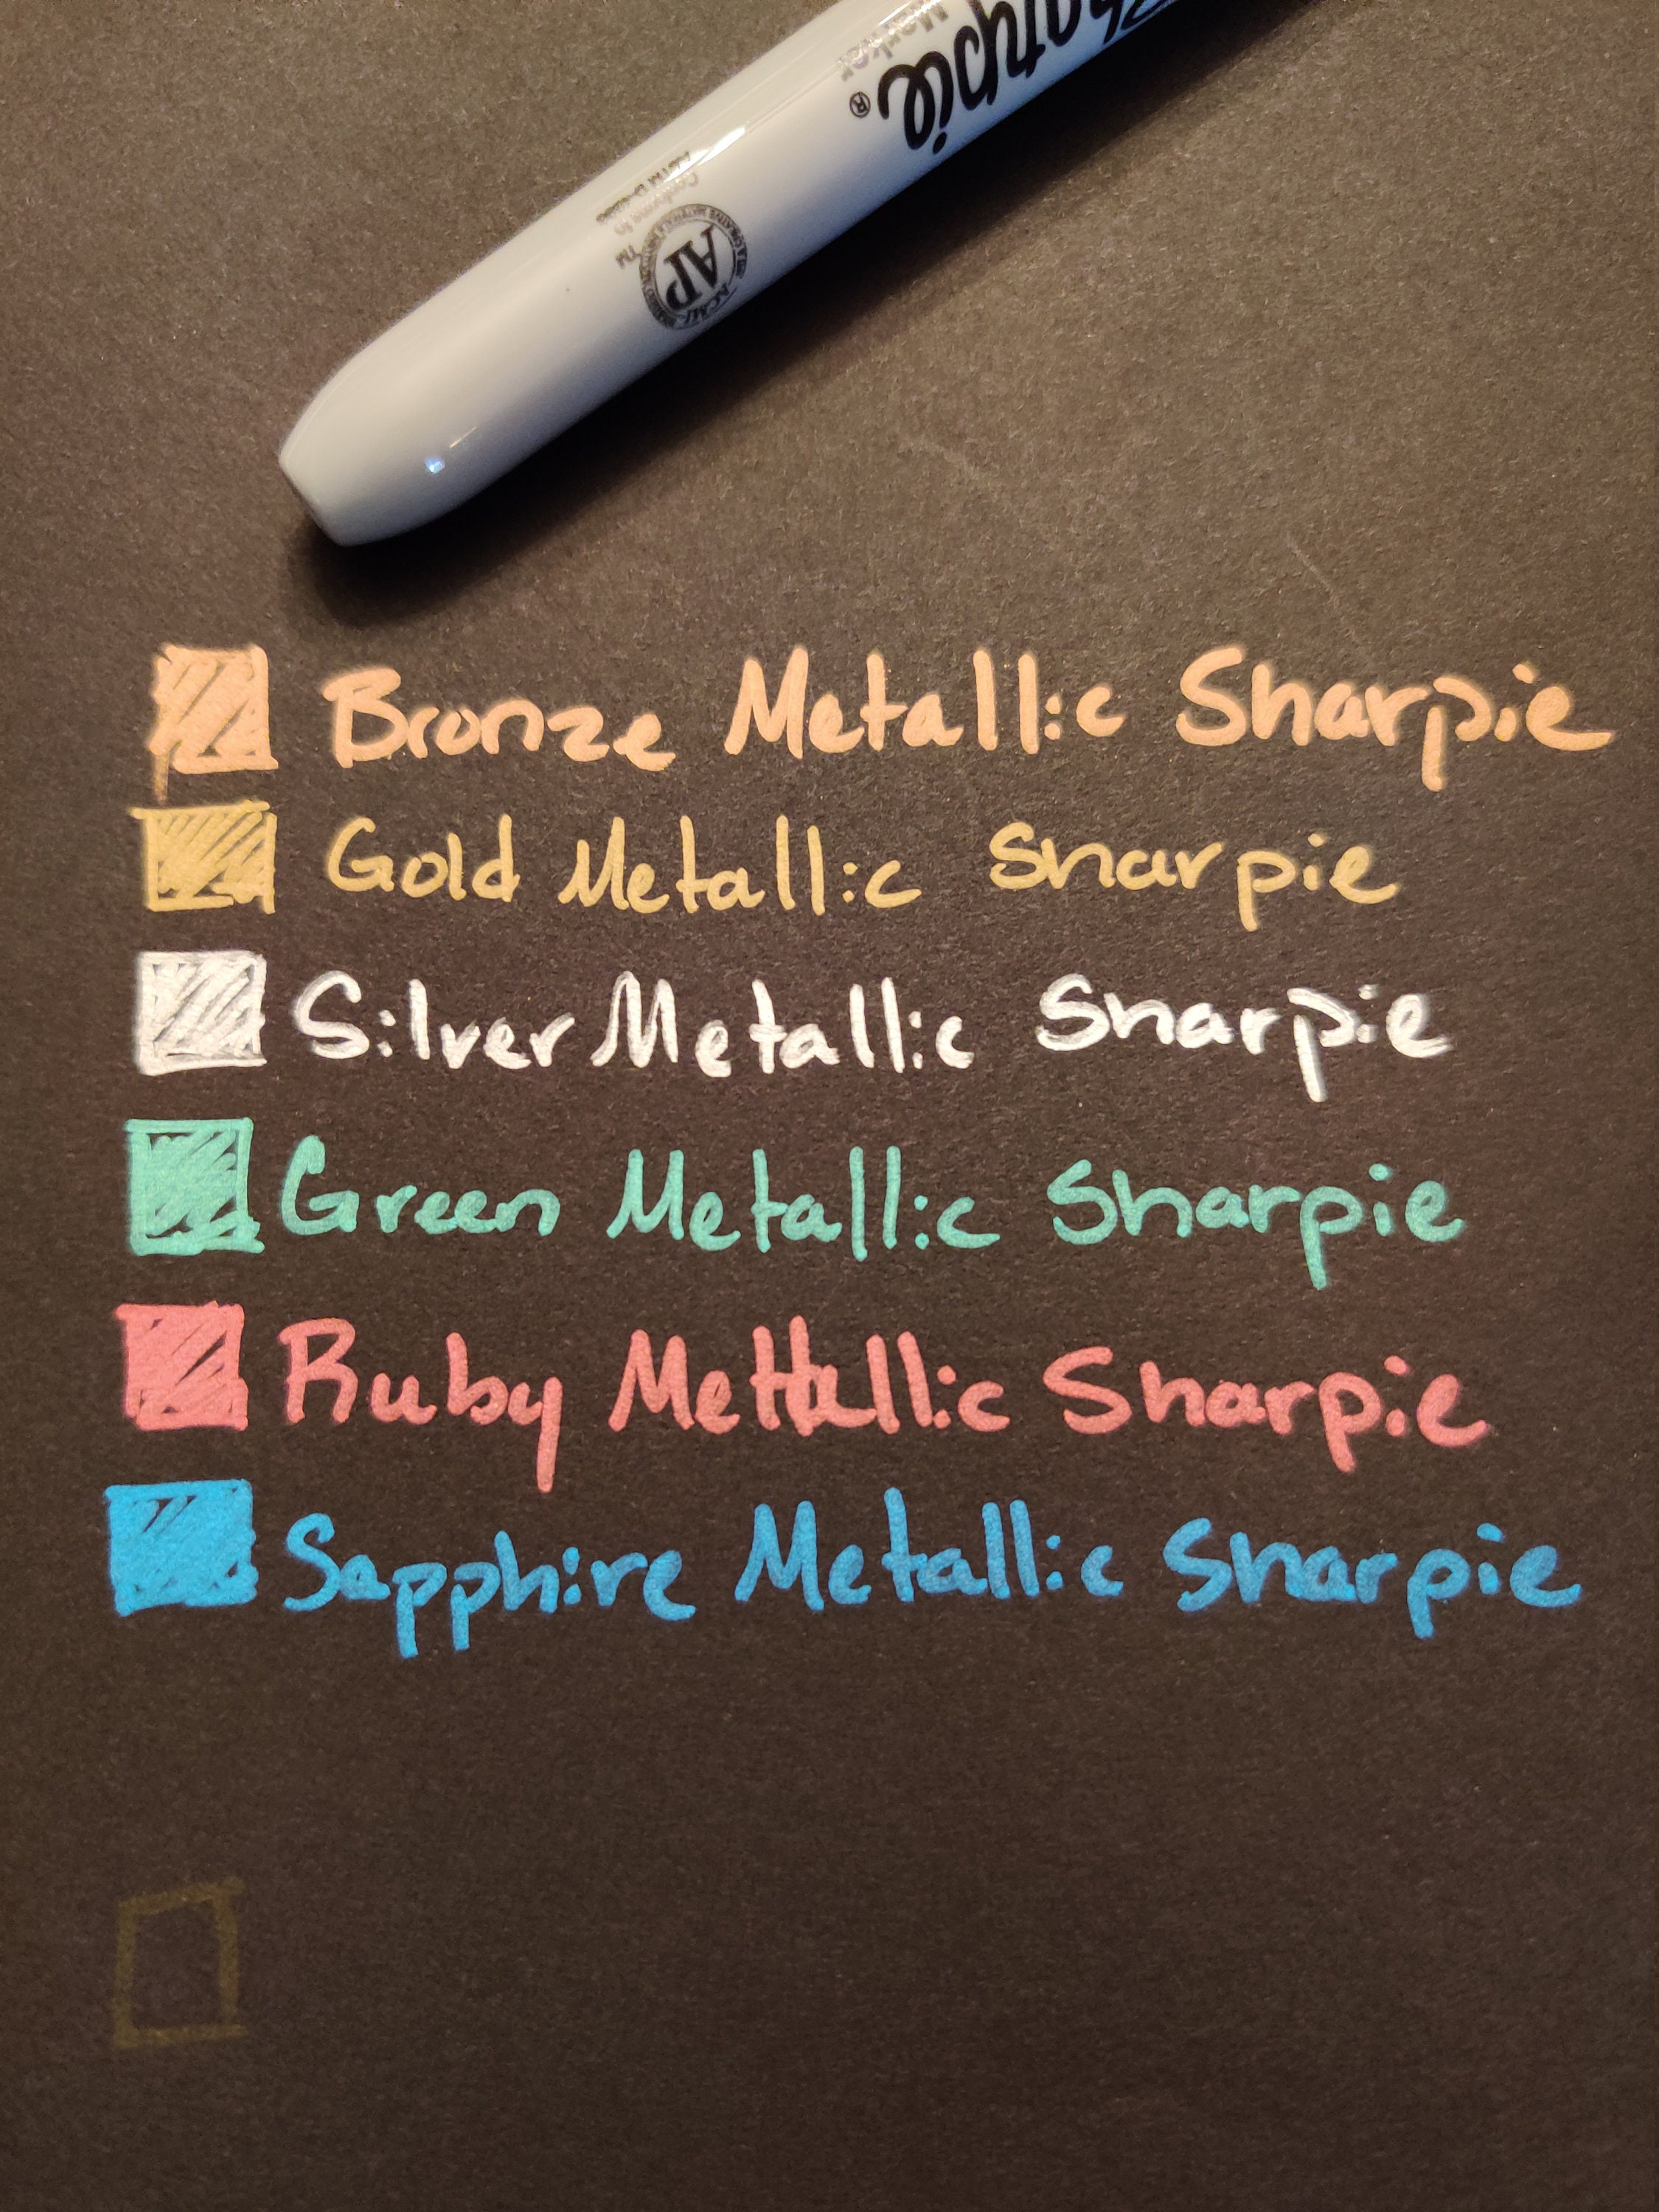 Sharpie®
Marker
Conforms to
ASTM D-4236
AP
TM
Bronze Metallic Sharpie
Gold Metallic Sharpie
Silver Metallic Sharpie
Green Metallic Sharpie
Ruby Mettallic Sharpie
Sapphire Metallic Sharpie